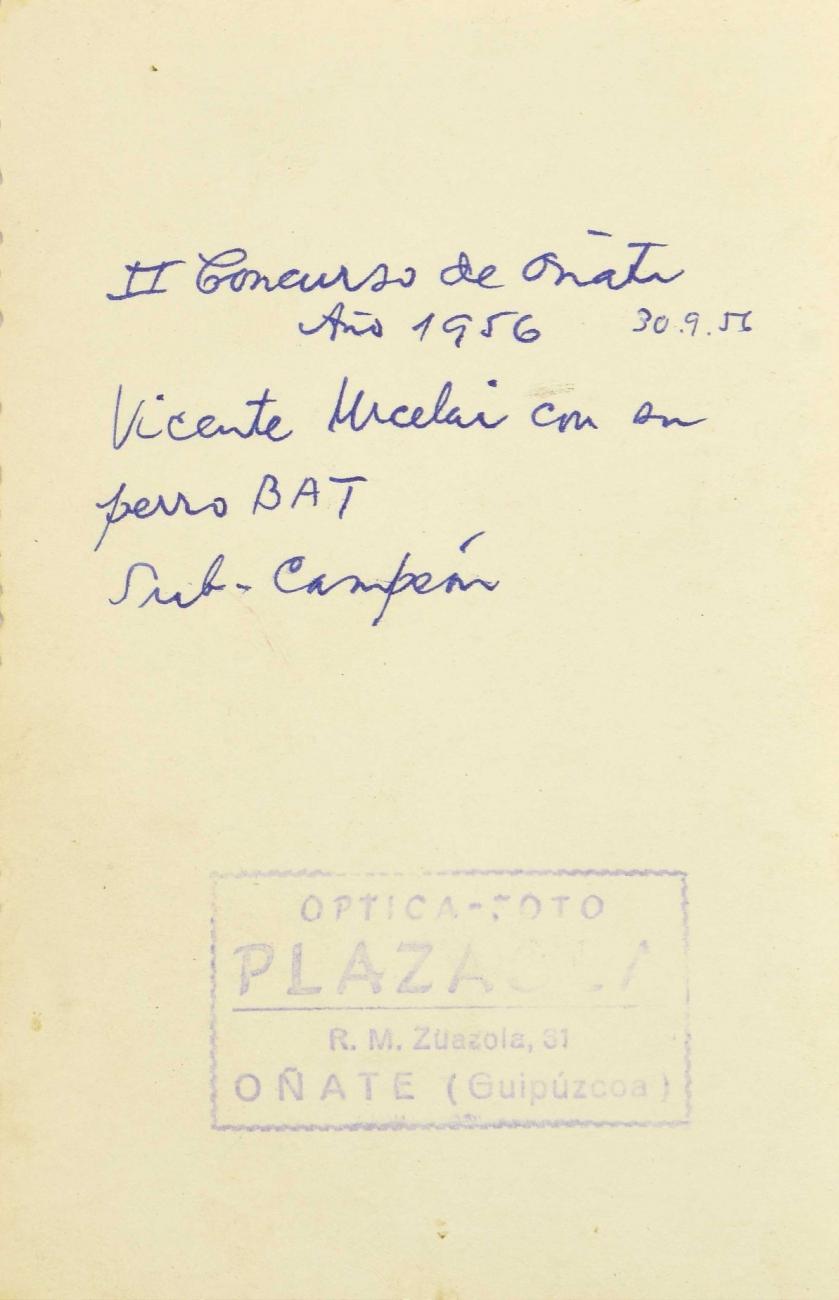 II Concurso de Oñati
Año 1956 30.9.56
Vicente Urcelai con su
perro BAT
Sub-Campeón
OPTICA-FOTO
PLAZAOLA
R. M. Zuazola, 31
OÑATE (Guipúzcoa)